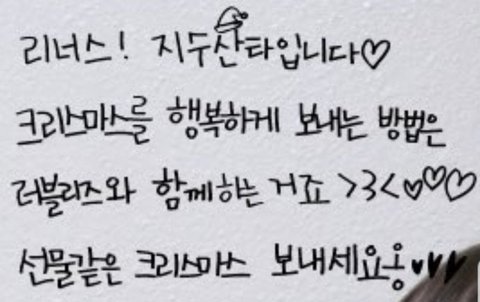 리너스! 지수산타입니다♡
크리스마스를 행복하게 보내는 방법은
러블리즈와 함께하는 거죠 >3<♡♡♡
선물같은 크리스마스 보내세요옹♥♥♥